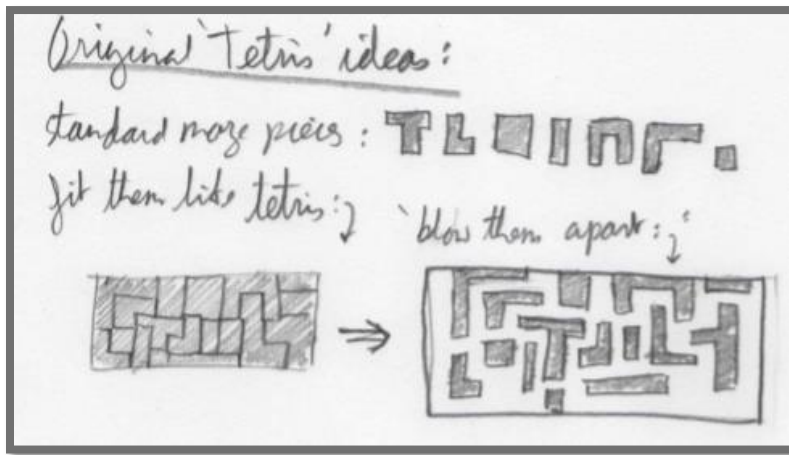 Original 'Tetris' ideas:
standard maze pieces:
fit them like tetris:
'blow them apart:'